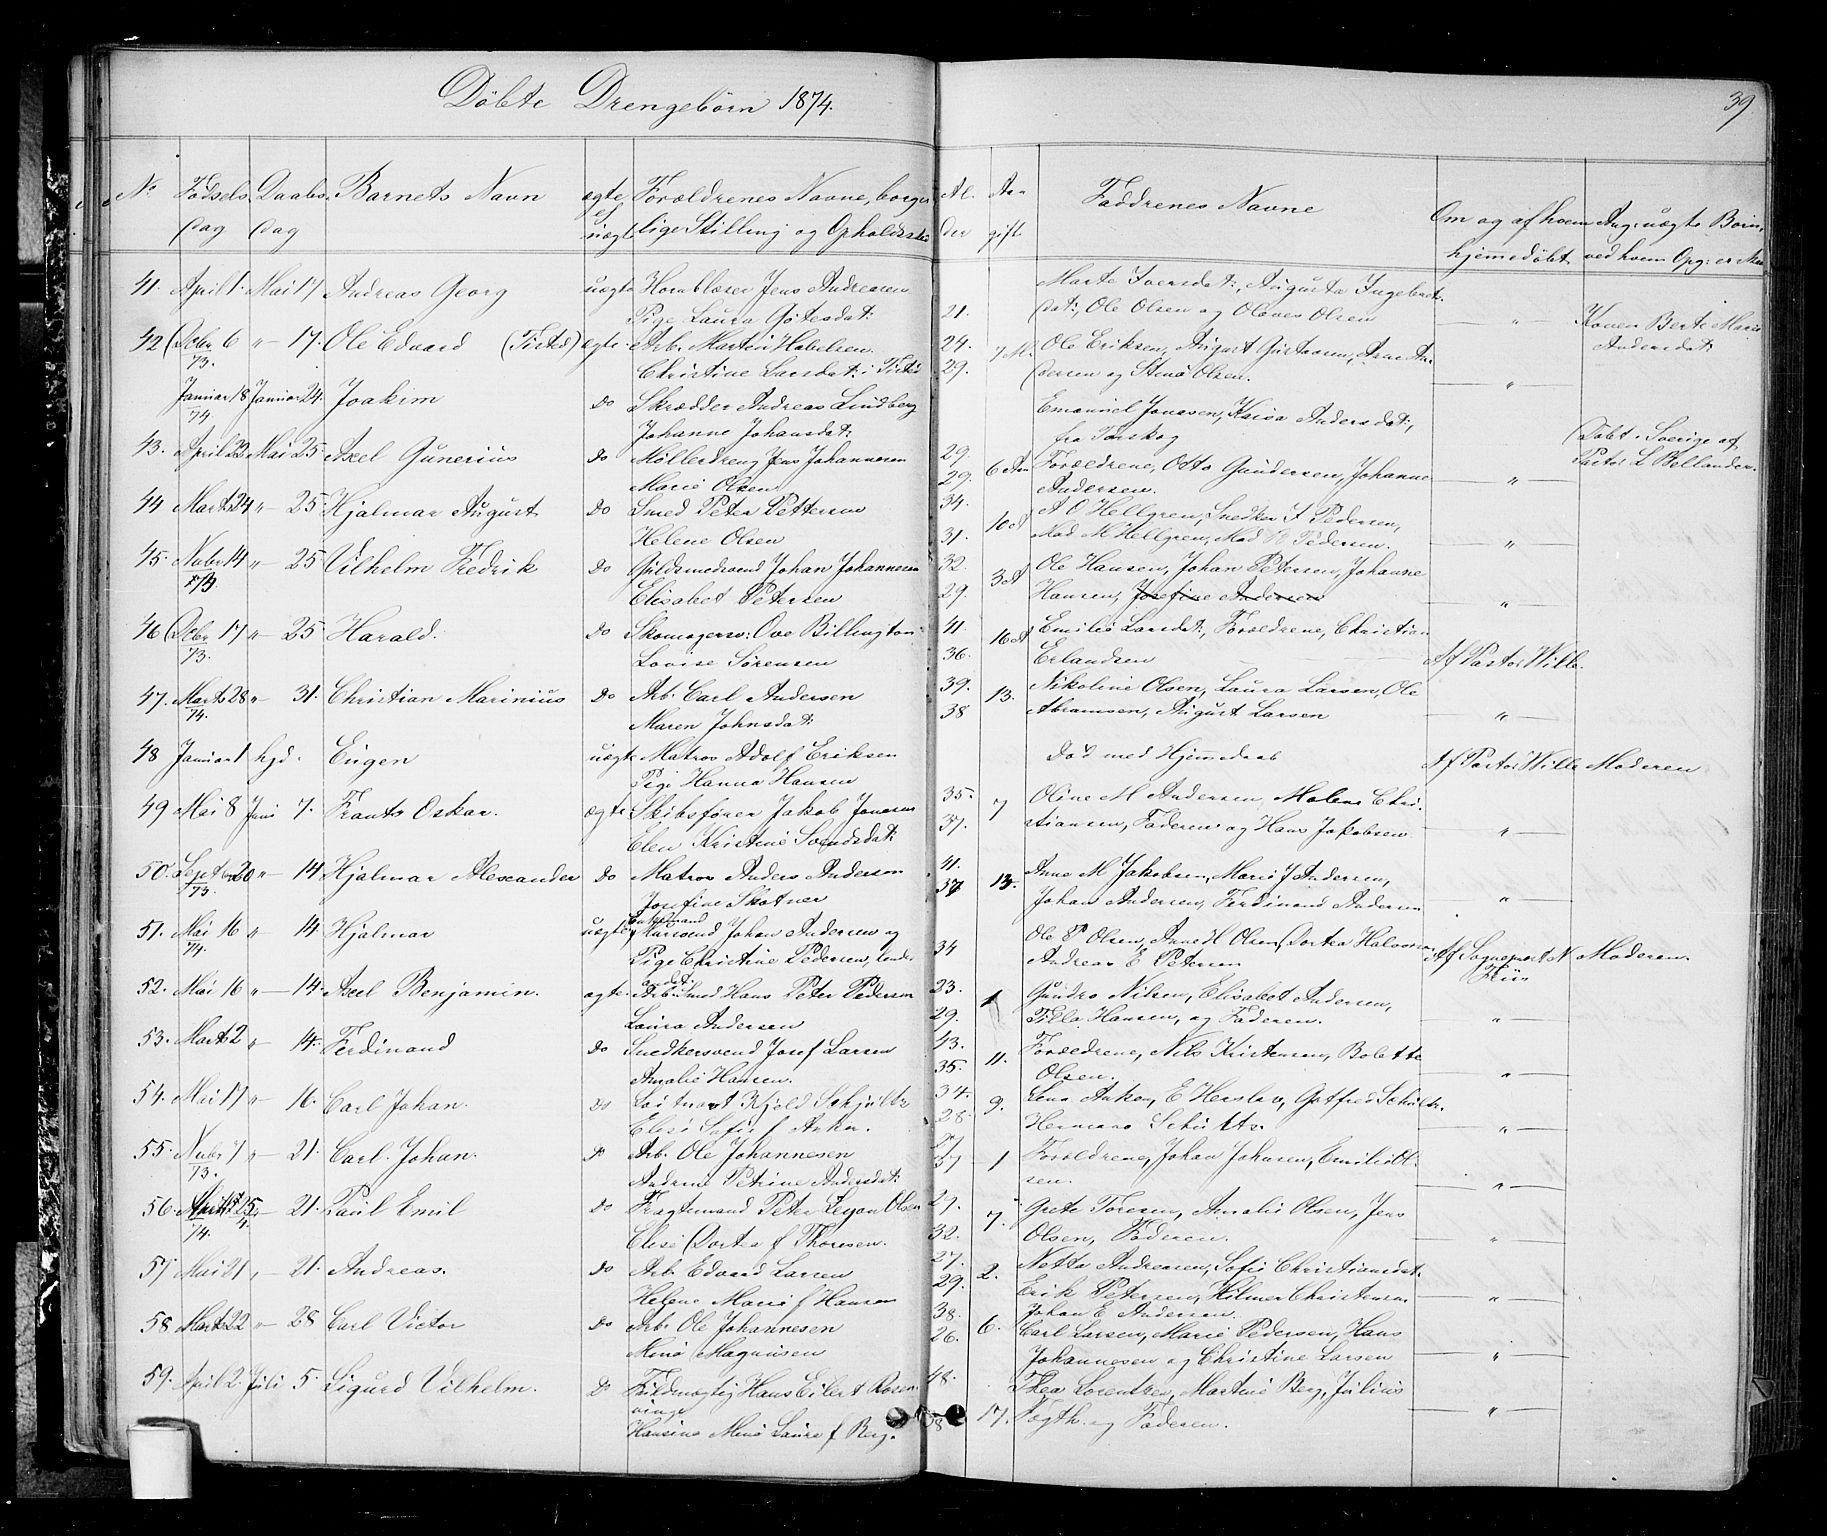 Döbte Drengebörn 1874.
39
No Födsels dag Daabs dag Barnets Navn ægte el uægte Forældrenes Navne, borgerlige Stilling og Opholdssted Alder Aa gift Faddrenes Navne Om og af hvem hjemedöbt Ang: uægte Börn, ved hvem Opg: er
41. April 1. Mai 17 Andreas Georg uægte Hornblæser Jens Andreasen
Pige Laura Götesdat:
21.
Marte Iversdat:, Augusta Ingebret-
dat:, Ole Olsen og Olaves Olsen
" Konen Berte Marie
Andersdat:
42 Dcbr 6 73. " 17. Ole Edvard (Tisted) ægte. Arb. Martin Habelsen.
Christine Larsdat: i Tisted
24. 29. 7 M.
Ole Eriksen, August Gustavsen, Arne An-
dersen og Stine Olsen.
"
Januar 18 74 Januar 24. Joakim Do Skrædder Andreas Lindberg
Johanne Johansdat:
Emanuel Jonassen, Kaisa Andersdat:,
fra Torskog
Döbt i Sverige af
Pastor L Bellander.
43. April 23 Mai 25 Axel Gunerius Do Möllerdreng Jens Johannesen
Marie Olsen
29. 29. 6 An
Forældrene, Otto Gundersen, Johanne
Andersen.
"
44 Marts 24 " 25 Hjalmar August Do Smed Peter Pettersen
Helene Olsen
34. 31. 10 A
A O Hellgren, Snedker F Pedersen,
Mad M Hellgren, Mad Pedersen.
"
45. Nvbr 14 73 " 25 Vilhelm Fredrik Do Guldsmedsvend Johan Johannesen
Elisabet Petersen
32. 29. 3 A
Ole Hansen, Johan Petersen, Johanne
Hansen, Josefine Andersen
"
46 Dcbr 17 73. " 25 Harald. Do Skomagersv: Ove Billington
Lovise Sörensen
41 36. 16 A
Emilie Larsdat:, Forældrene, Christian
Erlandsen
Af Pastor Wille
47. Marts 28 74. " 31. Christian Marinius Do Arb. Carl Andersen
Maren Johnsdat:
39. 38 13.
Nikoline Olsen, Laura Larsen, Ole
Abramsen, August Larsen
"
48 Januar 1 hjd. Eugen uægte Matros Adolf Eriksen
Pige Hanna Hansen
Död med Hjemedaab
Af Pastor Wille Moderen
49 Mai 8 Juni 7. Frants Oskar. ægte Skibsförer Jakob Jonasen
Elen Kristine Svendsdat:
35. 37. 7
Oline M Andersen, Malene Chri-
stiansen, Faderen og Hans Jakobsen
"
50. Septbr 20 73. " 14 Hjalmar Alexander Do Matros Anders Andersen
Josefine Skotner
41. 37 13.
Anne M Jakobsen, Marie J Andersen,
Johan Andersen, Ferdinand Andersen
"
51. Mai 16 74. " 14 Hjalmar uægte Enkemand
Mursvend Johan Andersen og
Pige Christine Pedersen,
34
Ole P Olsen, Anne H Olsen, Dortea Halvorsen
Andreas E Petersen
Af Sogneprest N Moderen.
52. Mai 16 " 14. Axel Benjamin. ægte. Arb: Smed Hans Peter Pedersen
Laura Andersen
23. 29. 1
Gundro Nilsen, Elisabet Andersen,
Tilla Hansen, og Faderen.
"
53. Marts 2 " 14. Ferdinand Do Snedkersvend Josef Larsen
Amalie Hansen.
43. 35. 11.
Forældrene, Nils Kristensen, Bolette
Olsen.
"
54. Mai 17 " 16. Carl Johan. Do Löitnant Kjeld
Elise Sofie f Anker.
34. 28. 9.
Lena Anker, E Herslev, Gotfred Schultz.
Hermann Schultz.
"
55. Nvbr 7 73. " 21. Carl Johan. Do Arb. Ole Johannesen
Andrine Petrine Andersdat:
37 1
Forældrene, Johan Johnsen, Emilie Ol-
sen.
"
56. April 25 74. " 21. Paul Emil Do Fragtemand Peter Olsen
Elise Dortea f Thoresen.
29. 32. 7.
Grete Toresen, Amalie Olsen, Jens
Olsen, Faderen.
"
57 Mai 21 " 21. Andreas. Do Arb. Edvard Larsen
Helene Marie f Hansen
27. 29. 2.
Netta Andreasen, Sofie Christiansdat:
Erik Petersen, Hilmer Christensen
"
58 Marts 22 " 28 Carl Victor Do Arb. Ole Johannesen
Mina Magnusen
38. 26. 6.
Johan E Andersen.
Carl Larsen, Marie Pedersen, Hans
Johannesen og Christine Larsen
"
59. April 2. Juli 5. Sigurd Vilhelm. Do Fuldmægtig Hans Eilert Rosen-
vinge
Hansine Mine Laura f Berg.
48. 38 17.
Thea Lorentzen, Martine Berg, Julius
Fogth. og Faderen.
"